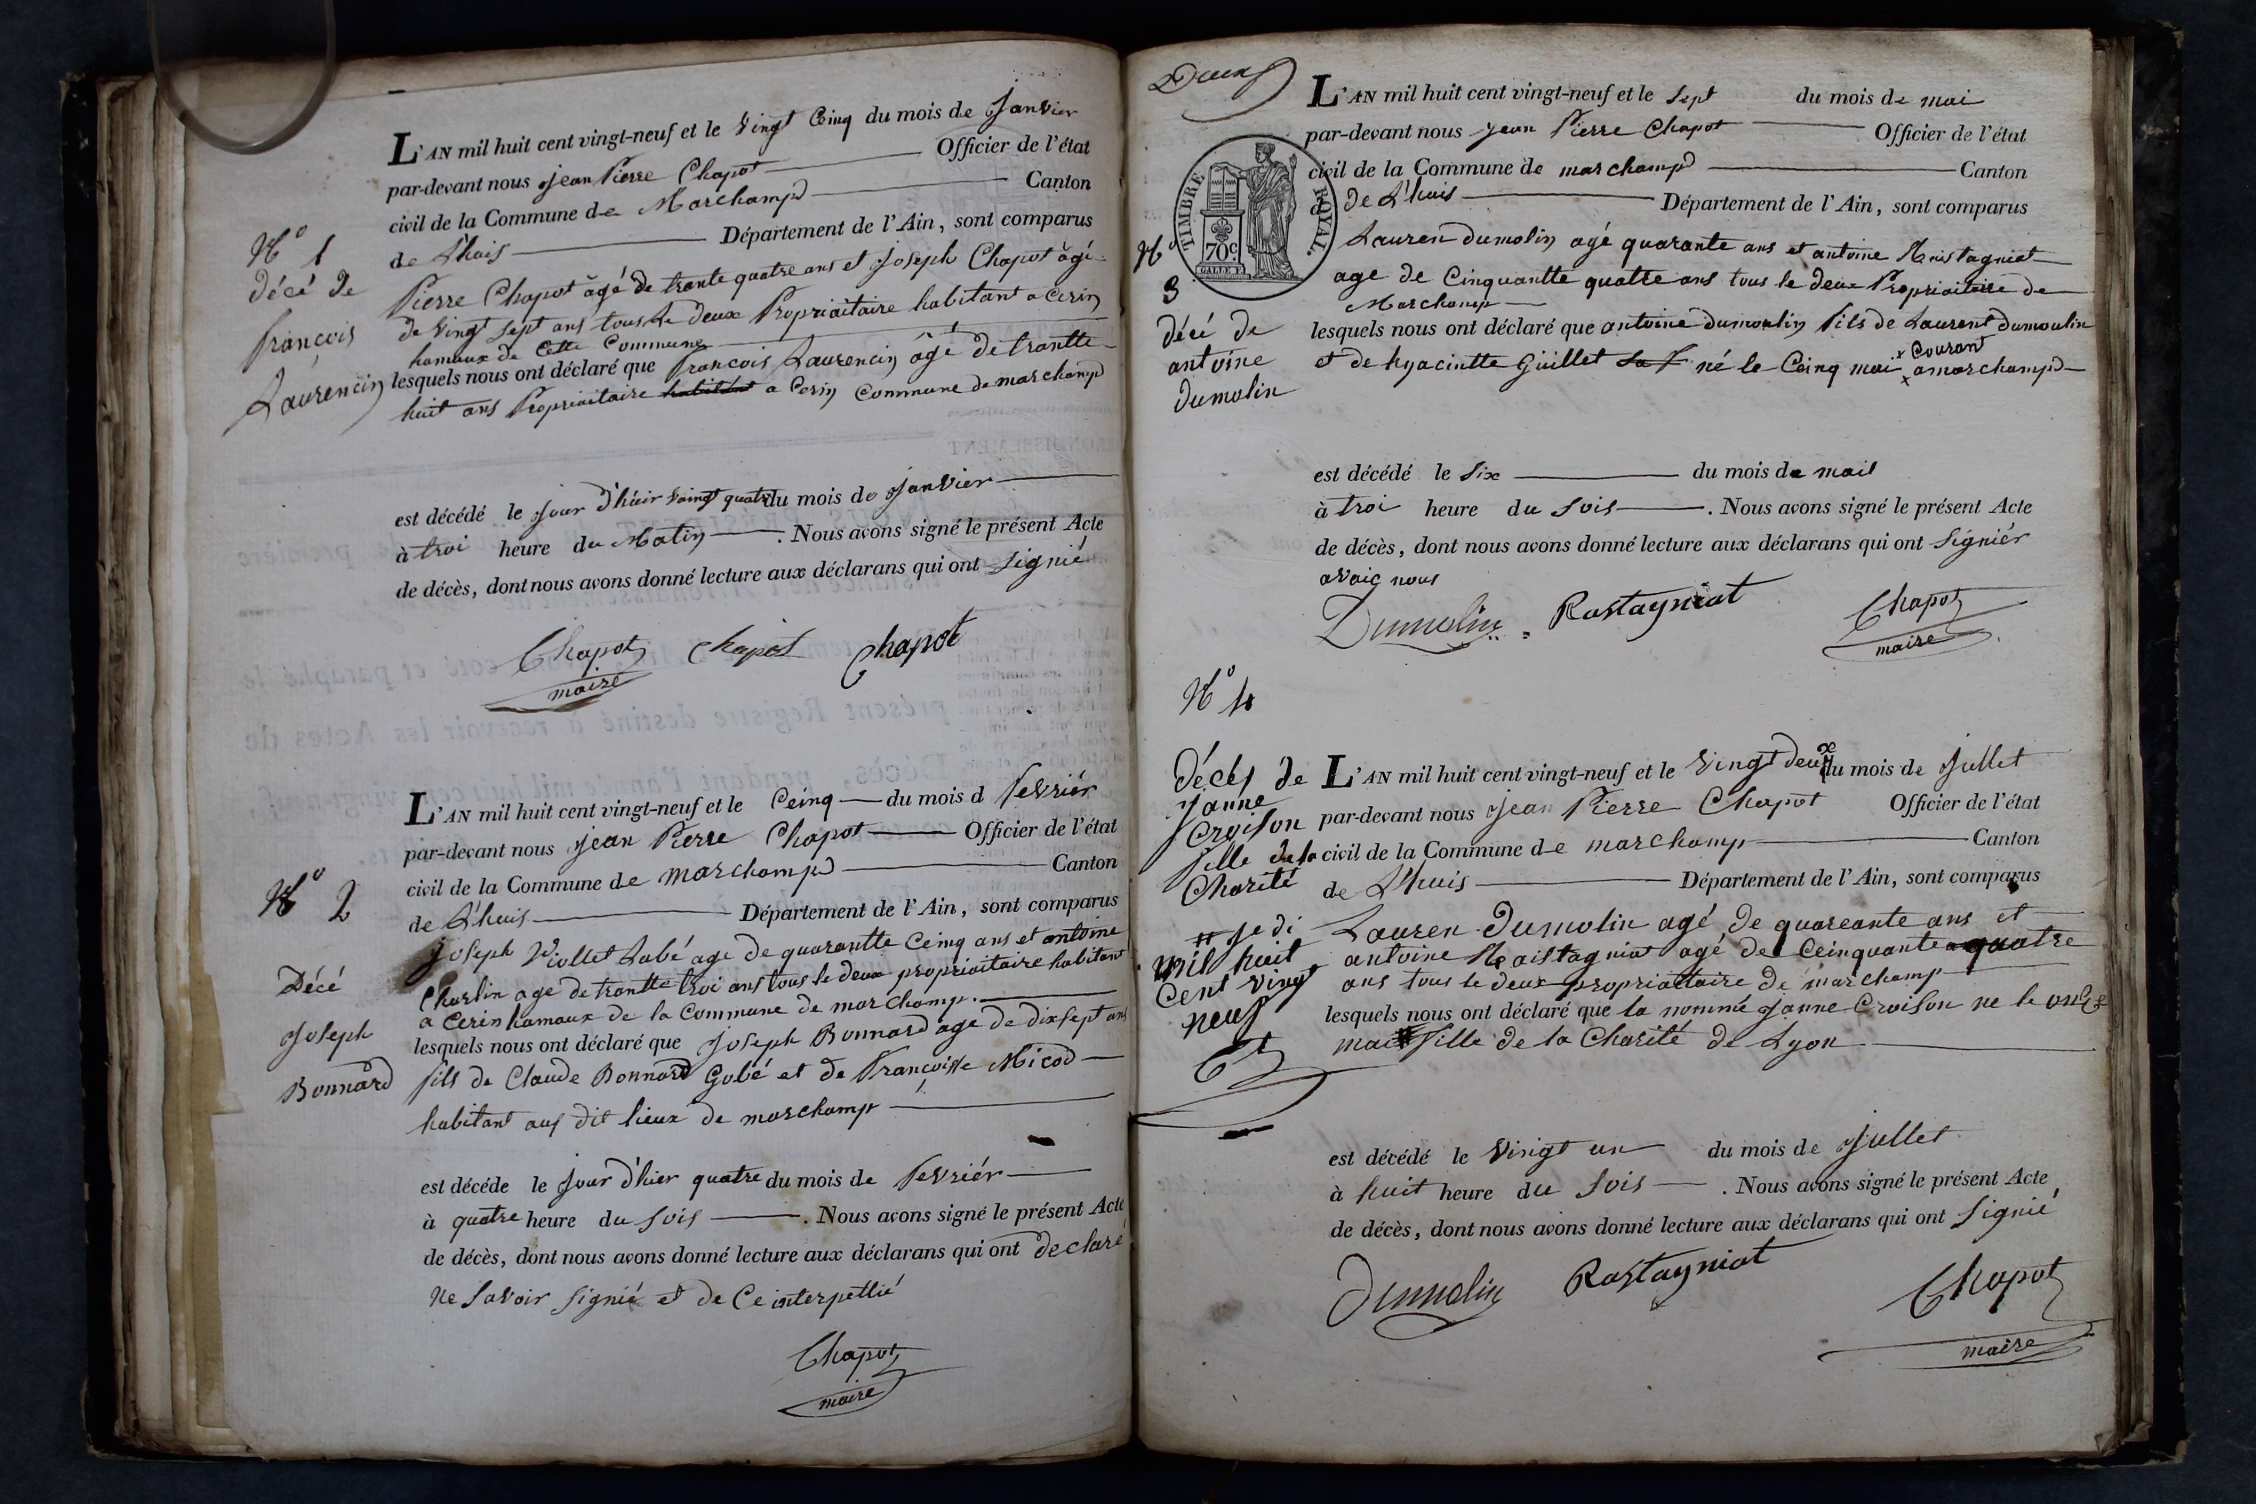 L'AN mil huit cent vingt-neuf et le vingt Cinq du mois de Janvier
par-devant nous Jean Pierre Chapot Officier de l'état
civil de la Commune de Marchamp Canton
de L'huis Département de l'Ain, sont comparus
Pierre Chapot âgé de trante quatre ans et Joseph Chapot âgé
de vingt sept ans tous le deux Propriaitaire habitant a Cerin
hamaux de Cette Commune
lesquels nous ont déclaré que francois Laurencin âgé de trantte
huit ans Propriaitaire habitant a Cerin Commune de marchamp
N° 1
décé de
francois
Laurencin
est décédé le jour d'huir vaingt quatre du mois de Janvier
à troi heure du Matin. Nous avons signé le présent Acte
de décès, dont nous avons donné lecture aux déclarans qui ont signié
Chapot Chapot Chapot
maire
L'AN mil huit cent vingt-neuf et le Ceinq du mois d fevriér
par-devant nous jean Pierre Chapot Officier de l'état
civil de la Commune de marchamp Canton
de L'huis Département de l'Ain, sont comparus
Joseph Viollet Labé age de quarantte Ceinq ans et antoine
Charlin age de trantte troi ans tous le deux propriaitaire habitant
a Cerin hamaux de la Commune de marchamp.
lesquels nous ont déclaré que Joseph Bonnard age de dix sept ans
fils de Claude Bonnard Gobé et de Francoisse Micod
habitant aus dit lieux de marchamp
N° 2
Décé
Joseph
Bonnard
est décéde le jour d'hier quatre du mois de fevriér
à quatre heure du soir. Nous avons signé le présent Acte
de décès, dont nous avons donné lecture aux déclarans qui ont declaré
ne savoir signié et de Ce interpellié
Chapot
maire
Deux
L'AN mil huit cent vingt-neuf et le sept du mois de mai
par-devant nous jean Pierre Chapot Officier de l'état
civil de la Commune de marchamp Canton
d de L'huis Département de l'Ain, sont comparus
TIMBRE ROYAL
70c.
Lauren dumolin agé quarante ans et antoine
age de Cinquantte quattre ans tous le deux Propriaitaire de
Marchamp
lesquels nous ont déclaré que antoine dumoulin fils de Laurent dumoulin
et de hyacintte Guillet né le Ceinq mai x Courant
x a marchamp
N°
3
décé de
antoine
dumolin
est décédé le six du mois de mail
à troi heure du soir. Nous avons signé le présent Acte
de décès, dont nous avons donné lecture aux déclarans qui ont signiér
avaic nous
Dumolin Rastagniat Chapot
maire
N° 4
décès de
Janne
Croison
fille de la
Charité
L'AN mil huit cent vingt-neuf et le vingt deux du mois de Jullet
par-devant nous Jean Pierre Chapot Officier de l'état
civil de la Commune de marchamp Canton
de L'huis Département de l'Ain, sont comparus
Lauren Dumolin agé de quareante ans et
antoine agé de Ceinquante quatre
ans tous le deux propriattaire de marchamp
lesquels nous ont déclaré que la nommé Janne Croison ne le onze
mai # fille de la Charité de Lyon
# je di
mil huit
Cent vingt
neuf
est décédé le vingt un du mois de Jullet
à huit heure du soir. Nous avons signé le présent Acte
de décès, dont nous avons donné lecture aux déclarans qui ont signié
Dumolin Rastagniat Chapot
maire